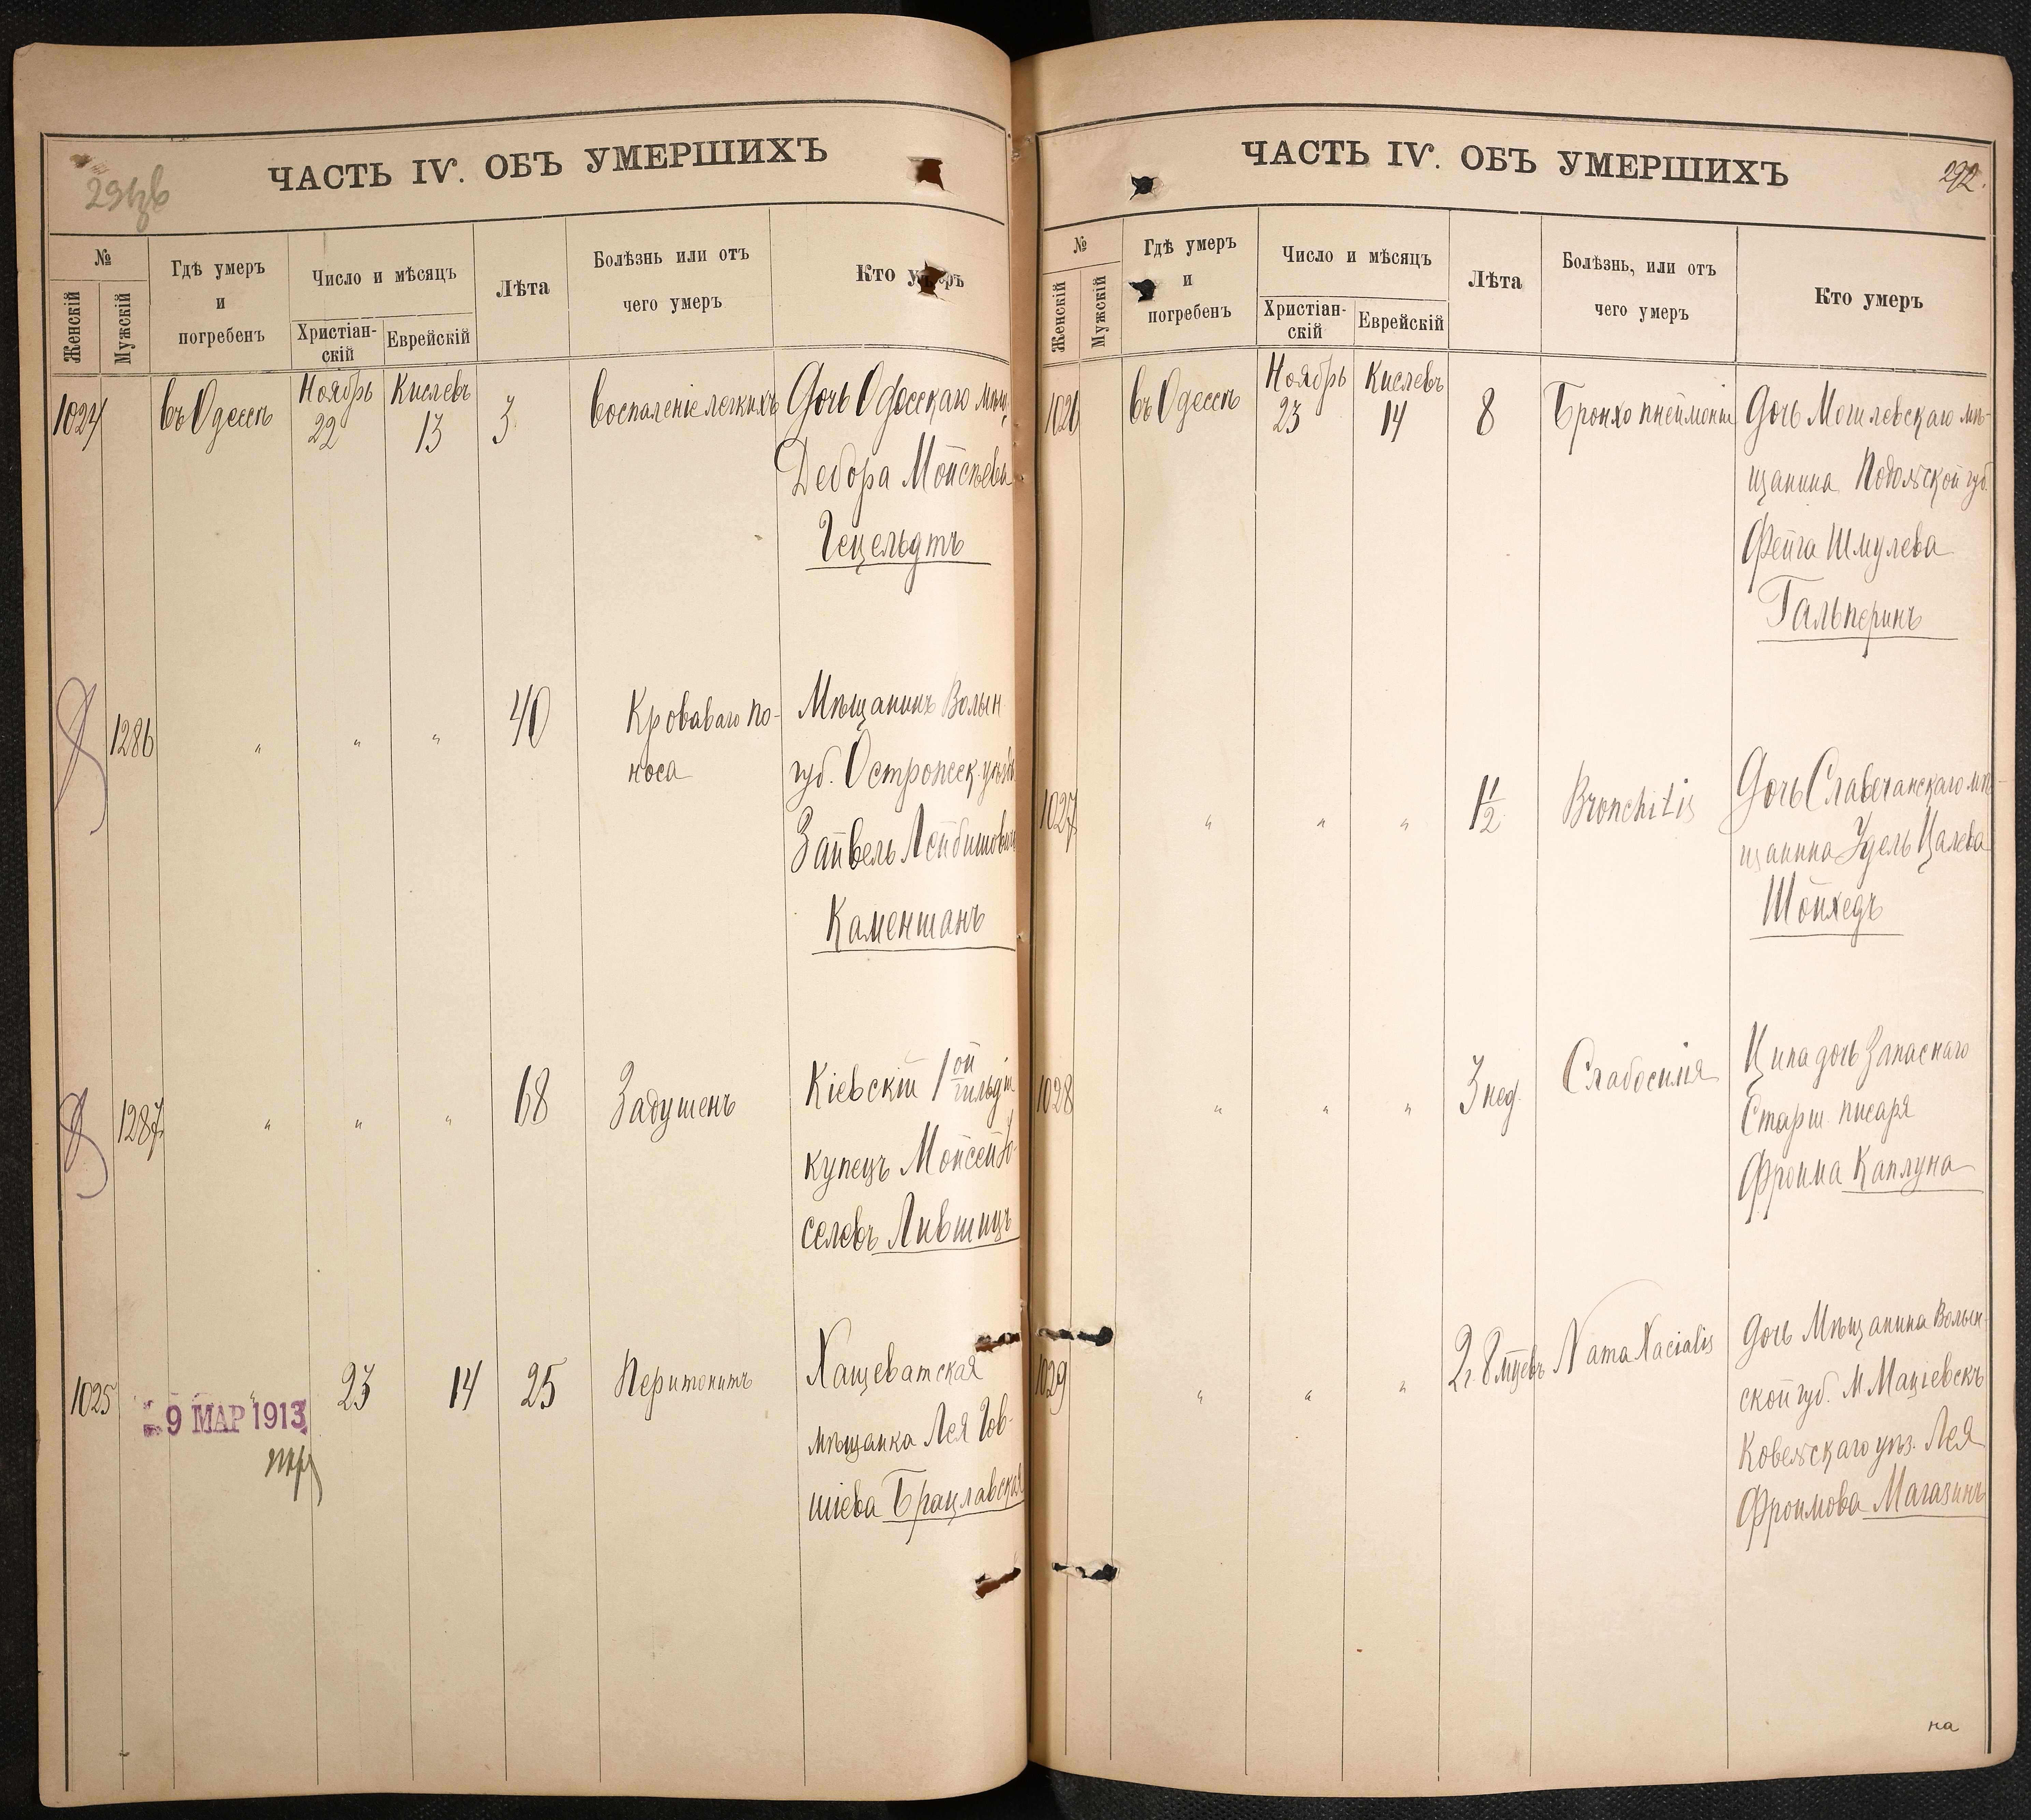 ЧАСТЬ IV. ОБЪ УМЕРШИХЪ
№
Женскій
Мужскій
Гдѣ умеръ
и
погребенъ
Число и мѣсяцъ
Христіан-
скій
Еврейскій
Лѣта
Болѣзнь или отъ
чего умеръ
Кто умеръ
1024
въ Одессѣ
Ноябрь
22
Кислевъ
13
3
Воспаленіе легкихъ
Дочь Одесскаго мѣщ.
Дебора Мойсѣева
Гецельдтъ
1286
" " "
40
Кроваваго по-
носа
Мѣщанинъ Волын
губ. Острожск. уѣзда
Зайвель Лейбишовичъ
Каменшанъ
1287
" " "
68
Задушенъ
Кіевскій 1 ой гильдіи
купецъ Мойсей Іо-
селевъ Лившицъ
1025
"
23
14
25
Перитонитъ
Хащеватская
мѣщанка Лея Гов-
шіева Брацлавская
9 МАР 1913
ЧАСТЬ IV. ОБЪ УМЕРШИХЪ
292.
№
Женскій
Мужскій
Гдѣ умеръ
и
погребенъ
Число и мѣсяцъ
Христіан-
скій
Еврейскій
Лѣта
Болѣзнь, или отъ
чего умеръ
Кто умеръ
1026
въ Одессѣ
Ноябрь
23
Кислевъ
14
8
Бронхо пнеймонія
Дочь Могилевскаго мѣ-
щанина Подольской губ.
Фейга Шмулева
Гальперинъ
1027
" " "
1 1/2
Bronchitis
Дочь Славечанскаго мѣ-
щанина Удель Цалева
Шойхедъ
1028
" " "
3 нед.
Слабосилія
Ципа дочь Запаснаго
Старш. писаря
Фроима Каплуна
1029
" " "
2 г. 8 мцевъ
Noma Facialis
Дочь Мѣщанина Волын-
ской губ. М. Маціевскъ
Ковельскаго уѣз. Лея
Фроимова Магазинъ
на